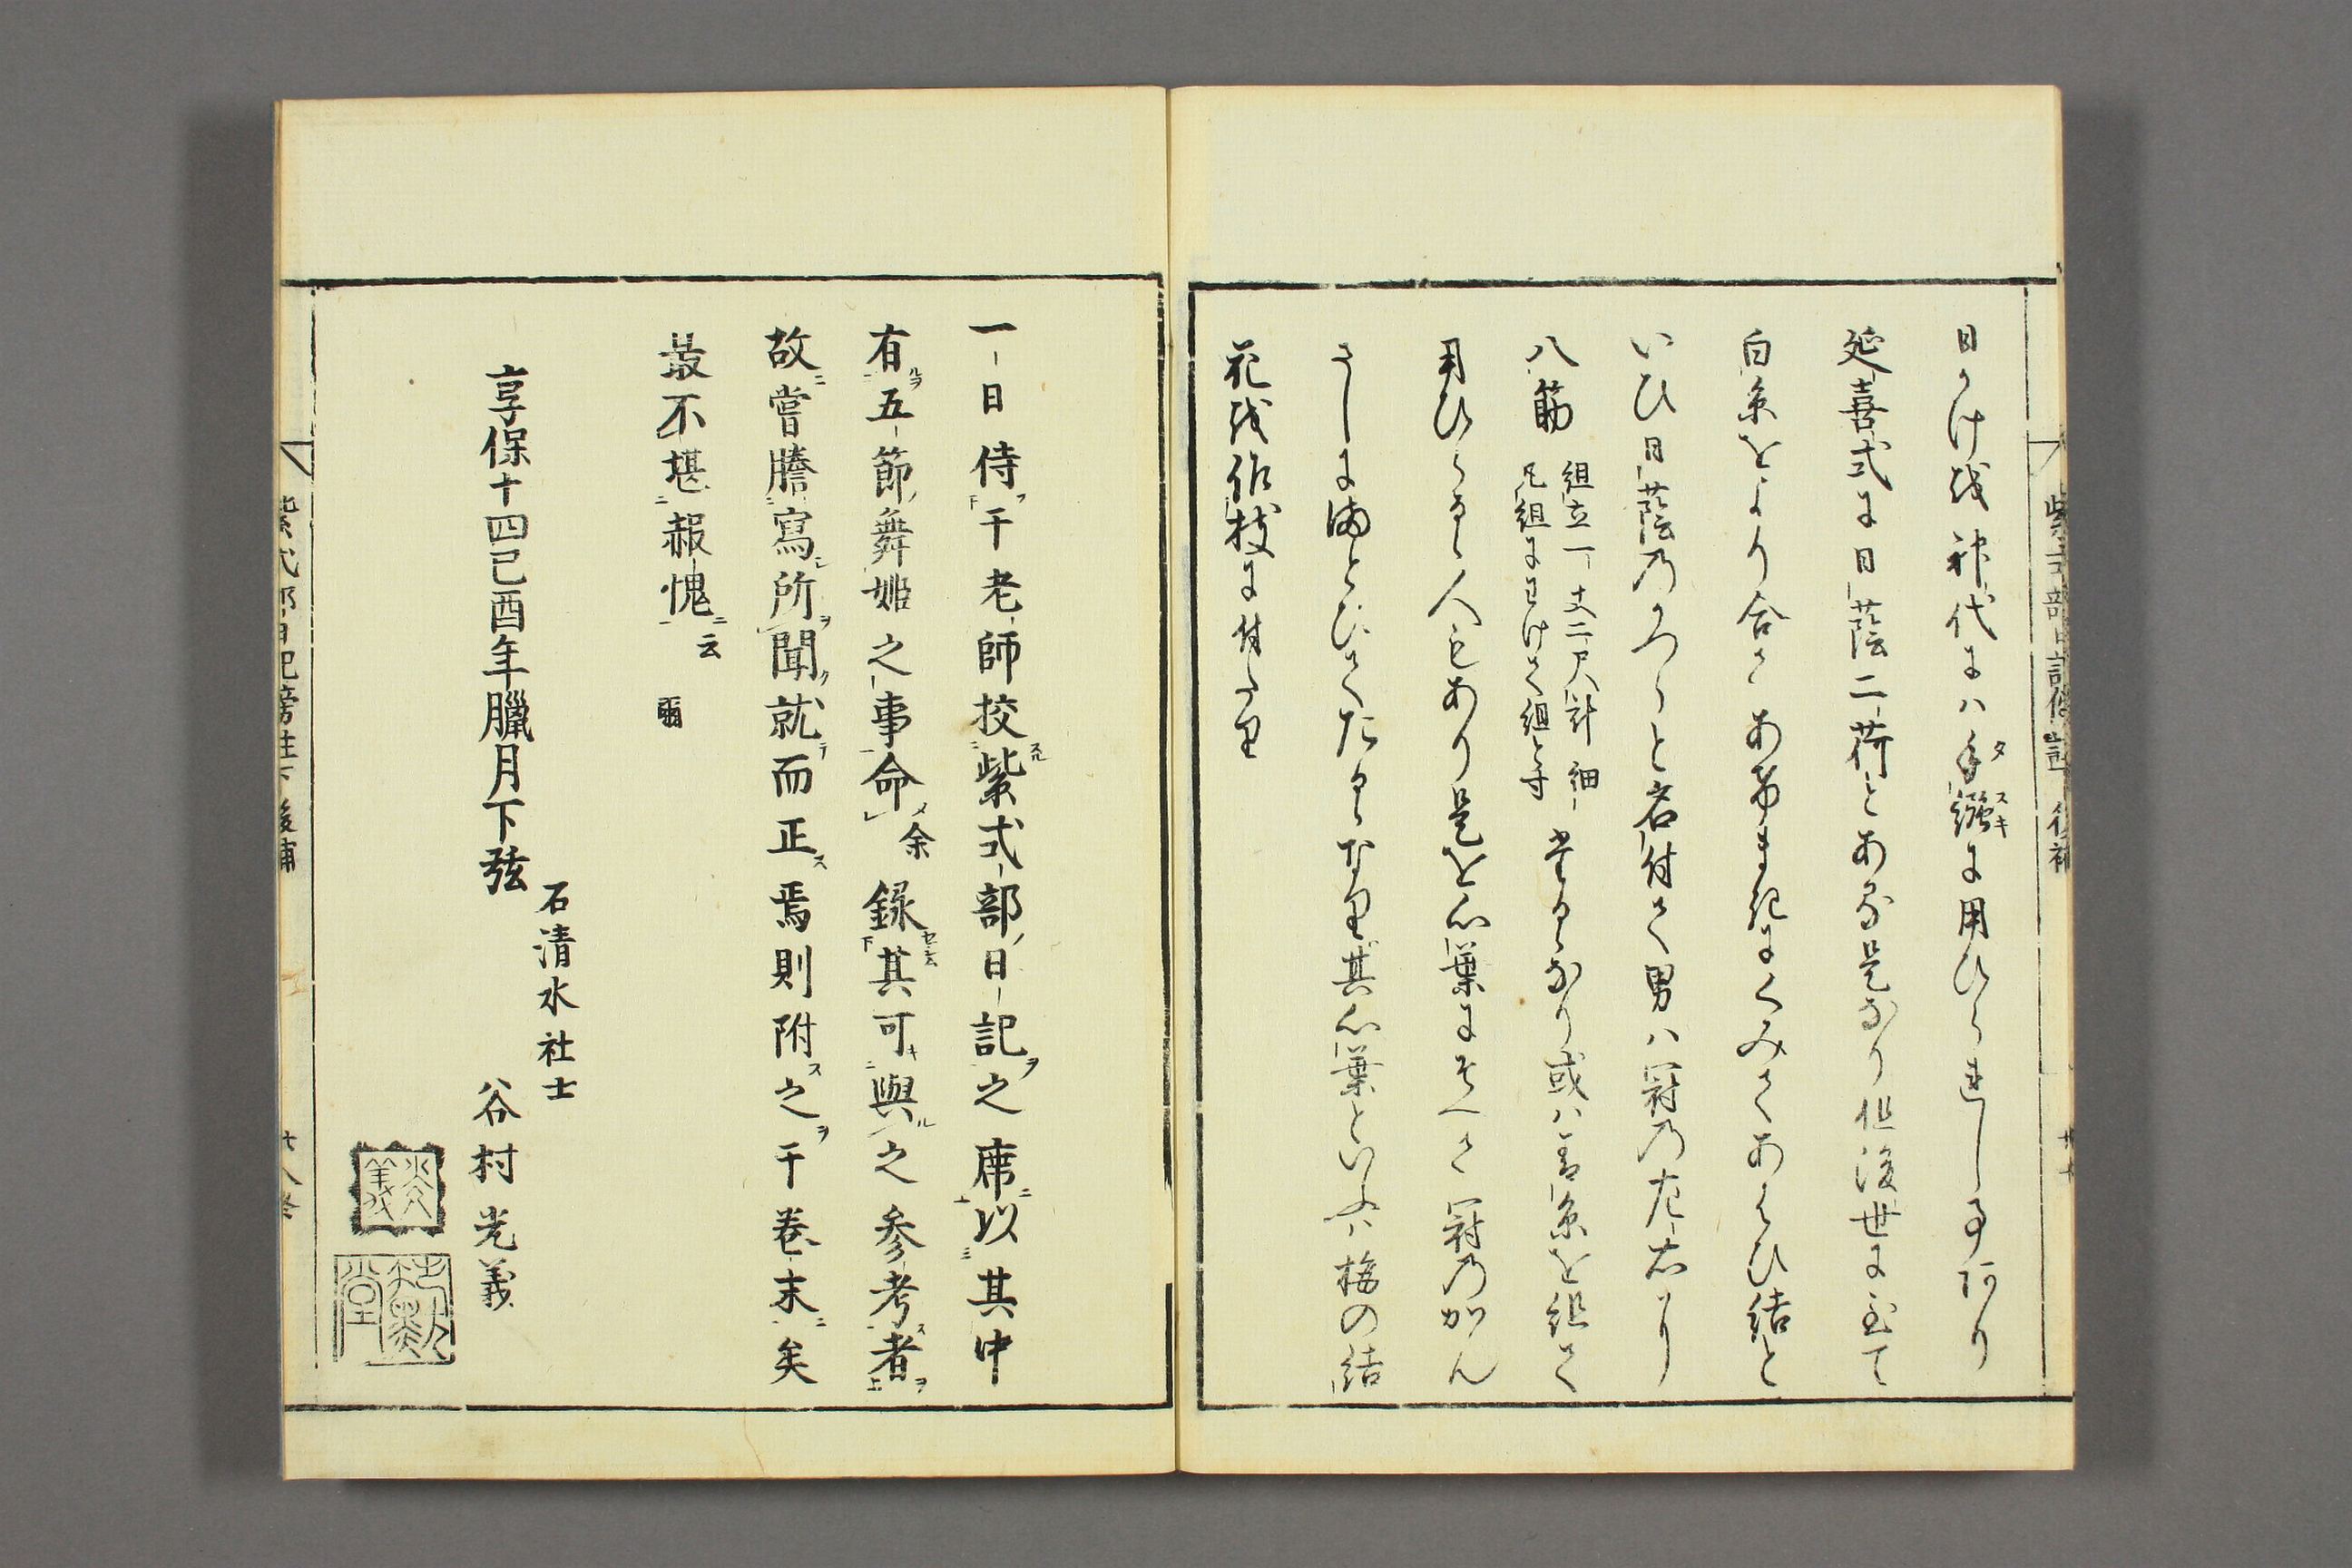 日かけ越神代にハ手繦に用ひられし事阿り
タスキ
延喜式に日蔭二荷とある是なり但後世に至て
白糸をより合てあけまきにくみてあはひ結と
いひ日蔭乃かつらと名付て男ハ冠乃左右より
八筋
組立一丈二尺計細
凡組にわけて組と寸
たるゝなり或ハ青糸を組て
用ひらるゝ人もあり是を心葉にそへて冠乃かん
さしにまとひてたるゝなり其心葉といふハ梅の結
花越作枝に付たり
一日侍于老師挍紫式部日記之席以其中
有五節舞姫之事命余録其可與之参考者
故嘗謄寫所聞就而正焉則附之于巻末矣
最不堪赧愧云爾
享保十四己酉年臘月下弦
石清水社士
谷村光義
光義
紫式部日記傍註下後補